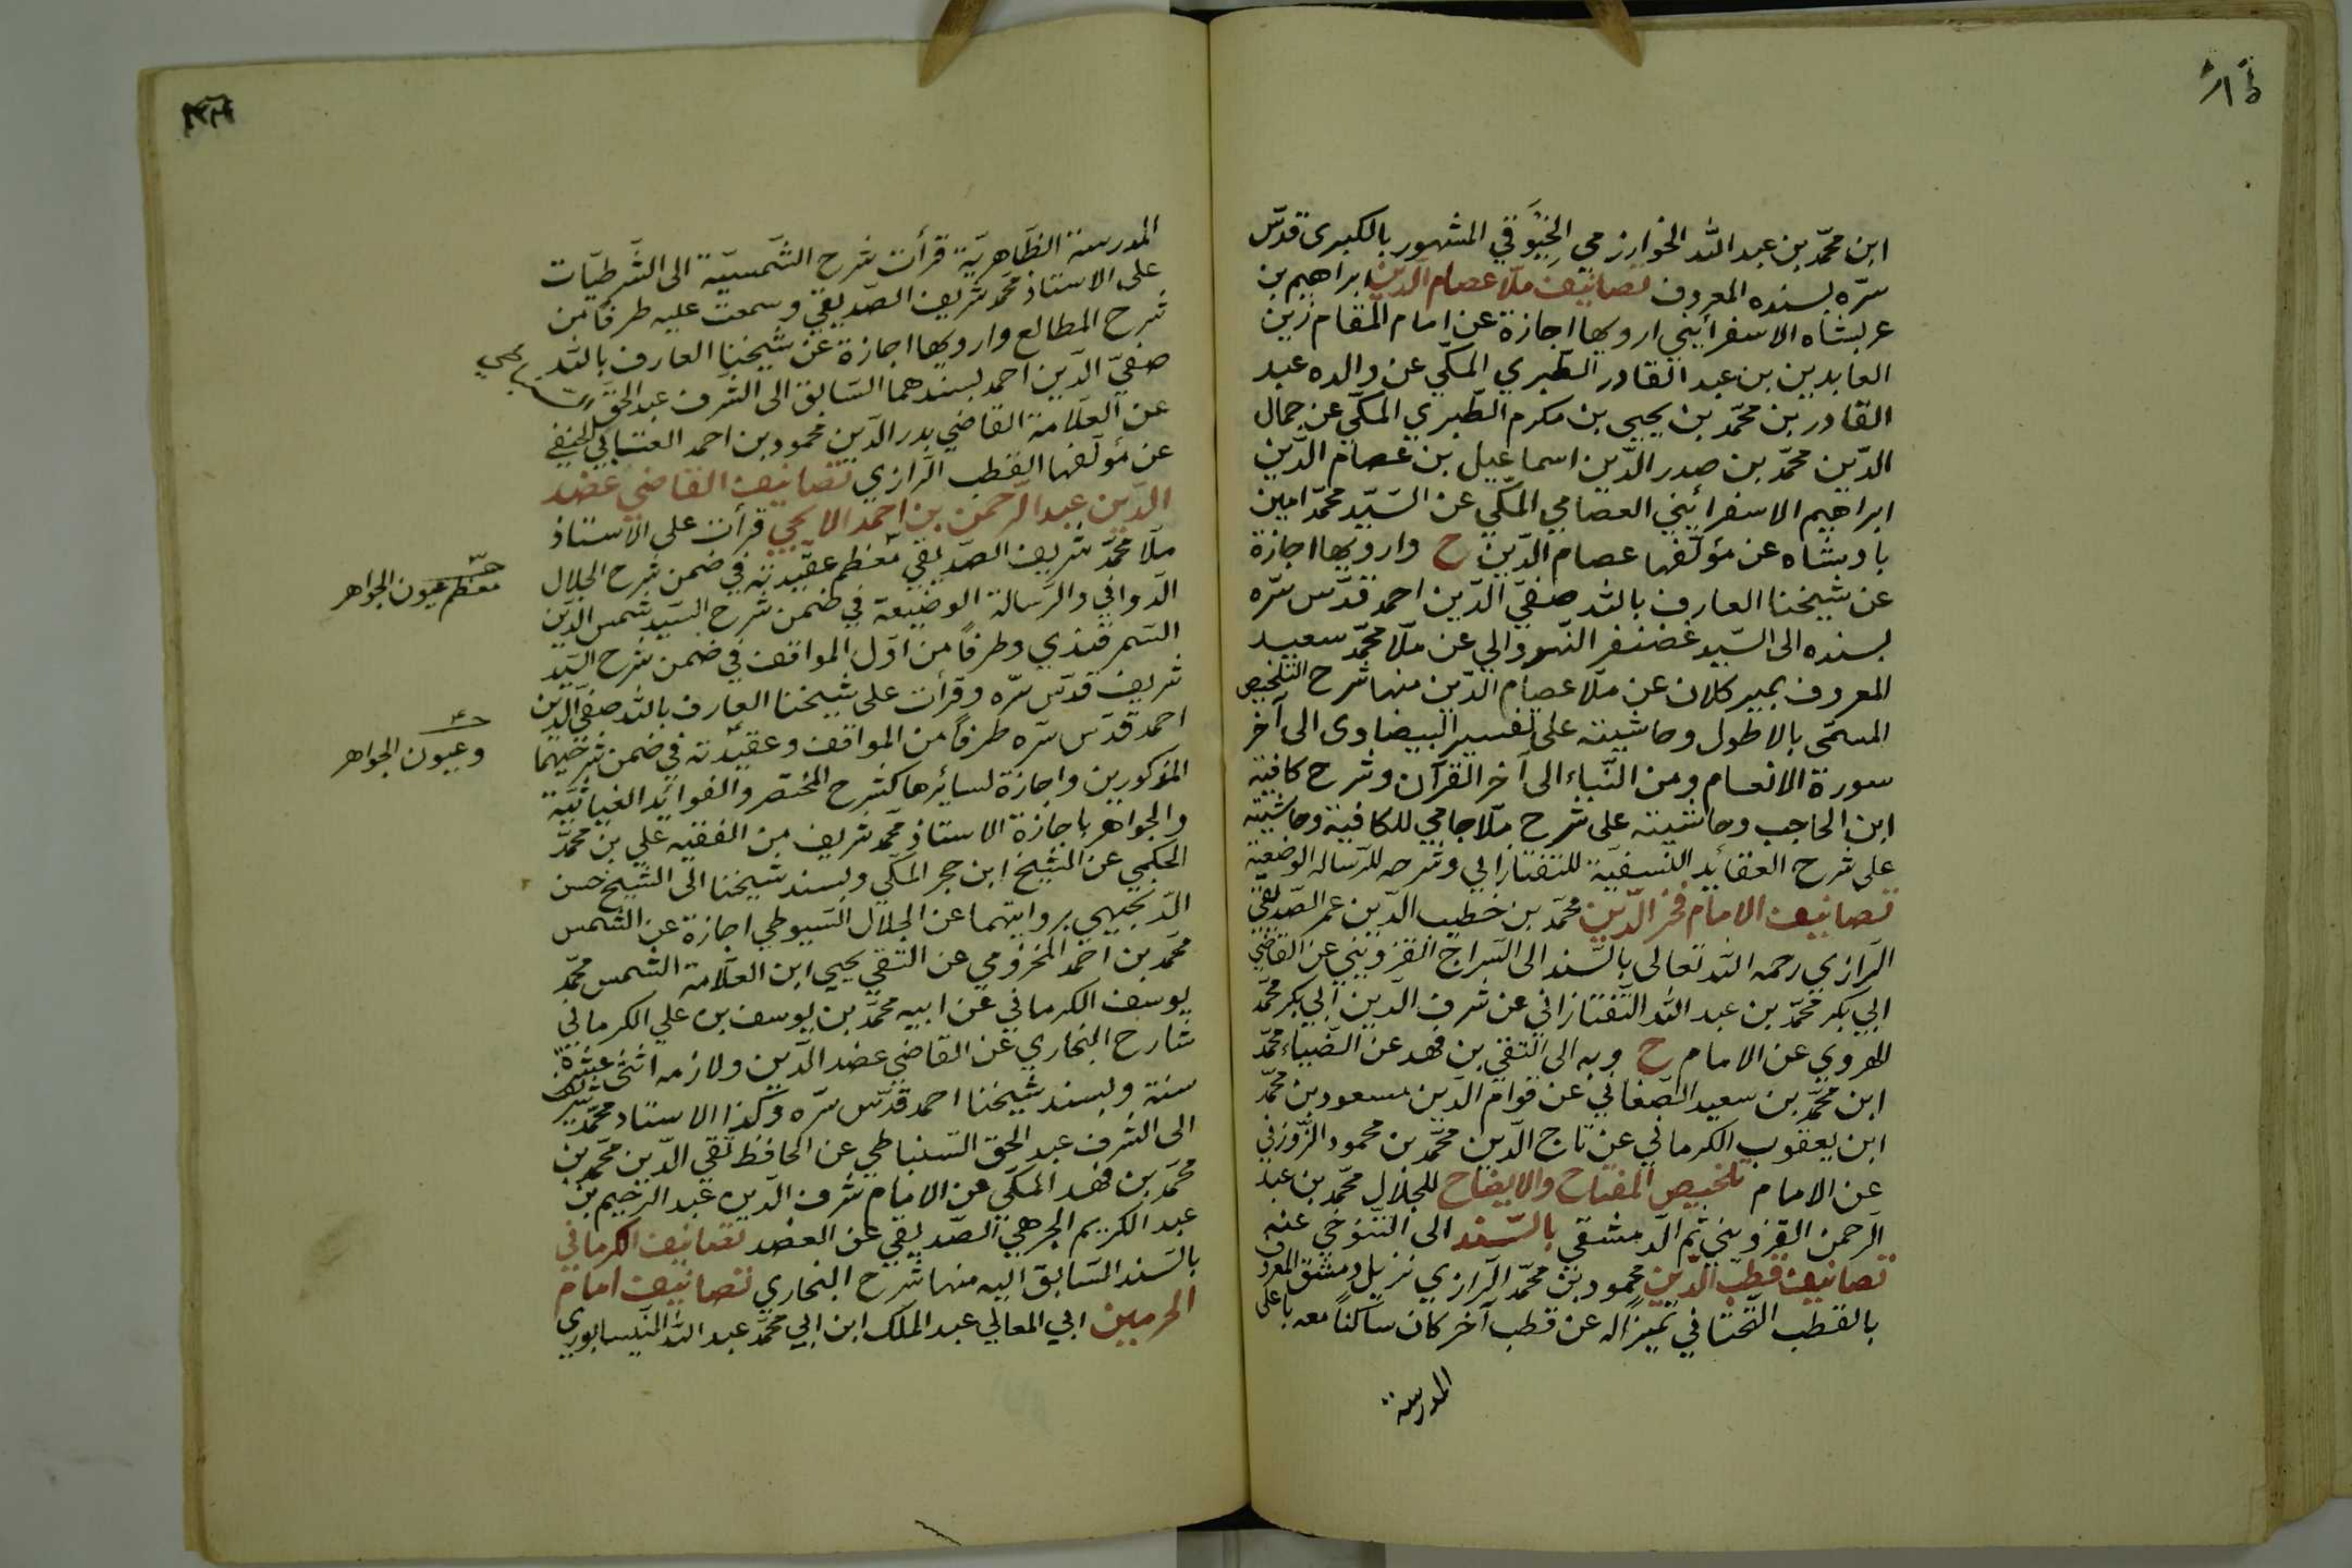 ابن محمّد بن عبد الله الخوارزمي الخِيْوَقي المشهور بالكبرى قدّس
سرّه بسنده المعروف تصانيف ملّا عصام الدين ابراهيم بن
عربشاه الاسفرائيني ارويها اجازة عن امام المقام زين
العابدين بن عبد القادر الطّبري المكّي عن والده عبد
القادر بن محمّد بن يحيى بن مكرم الطّبري المكّي عن جمال
الدّين محمّد بن صدر الدّين اسماعيل بن عصام الدّين
ابراهيم الاسفرائيني العصامي المكّي عن السّيّد محمّد امين
بادشاه عن مؤلّفها عصام الدّين ح وارويها اجازة
عن شيخنا العارف بالله صفيّ الدّين احمد قدّس سرّه
بسنده الى السّيد غضنفر النّهروالي عن ملّا محمّد سعيد
المعروف بمير كلان عن ملّا عصام الدّين منها شرح التلخيص
المسمّى بالاطول وحاشيته على تفسير البيضاوى الى آخر
سورة الانعام ومن النّباء الى آخر القرآن وشرح كافية
ابن الحاجب وحاشيته على شرح ملّا جامي للكافية وحاشيته
على شرح العقائد النسفيّة للتفتازاني وشرحه للرّساله الوضعيّة
تصانيف الامام فخر الدّين محمّد بن خطيب الدّين عمر الصّدّيقي
الرازي رحمه الله تعالى بالسّند الى السّراج القزويني عن القاضي
ابي بكر محمّد بن عبد الله التّفتازاني عن شرف الدّين ابي بكر محمّد
الهروي عن الامام ح وبه الى التقي بن فهد عن الضّياء محمّد
ابن محمّد بن سعيد الصّغاني عن قوام الدّين مسعود بن محمّد
ابن يعقوب الكرماني عن تاج الدّين محمّد بن محمود الزّوزني
عن الامام تلخيص المفتاح والايضاح للجلال محمّد بن عبد
الرحمن القزويني ثم الدّمشقي بالسّند الى التّنوخي عنه
تصانيف قطب الدّين محمود بن محمّد الرازي نزيل دمشق المعروف
بالقطب التّحتاني تمييزًا له عن قطب آخر كان ساكنًا معه باعلى
المدرسة
المدرسة الظّاهريّة قرأت شرح الشّمسيّة الى الشّرطيّات
على الاستاذ محمّد شريف الصّدّيقي وسمعت عليه طرفًا من
شرح المطالع وارويها اجازة عن شيخنا العارف بالله
صفيّ الدّين احمد بسندهما السّابق الى الشّرف عبد الحقّ
عن العلّامة القاضي بدر الدّين محمود بن احمد العنتابي الحنفي
عن مؤلّفها القطب الرازي تصانيف القاضي عضد
الدّين عبد الرّحمن بن احمد الايجي قرأت على الاستاذ
ملّا محمّد شريف الصّدّيقي معظم عقيدته في ضمن شرح الجلال
الدّواني والرّسالة الوضعيّة في ضمن شرح السّيّد شمس الدّين
السّمرقندي وطرفًا من اوّل المواقف في ضمن شرح السّيّد
شريف قدّس سرّه وقرأت على شيخنا العارف بالله صفيّ الدّين
احمد قدّس سرّه طرفًا من المواقف وعقيدته في ضمن شرحيهما
المذكورين واجازة لسائرها كشرح المختصر والفوائد الغياثيّة
والجواهر باجازة الاستاذ محمّد شريف من الفقيه علي بن محمّد
الحكمي عن الشّيخ ابن حجر المكّي وبسند شيخنا الى الشّيخ حسن
الدّنجيهي بروايتهما عن الجلال السّيوطي اجازة عن الشمس
محمّد بن احمد المخزومي عن التقي يحيى ابن العلّامة الشّمس محمّد
يوسف الكرماني عن ابيه محمّد بن يوسف بن علي الكرماني
شارح البخاري عن القاضي عضد الدّين ولازمه اثنتى عشرة
سنة وبسند شيخنا احمد قدّس سرّه وكذا الاستاد محمّد شريف
الى الشرف عبد الحق السّنباطي عن الحافظ تقي الدّين محمّد بن
محمّد بن فهد المكّي عن الامام شرف الدّين عبد الرحيم بن
عبد الكريم الجرهي الصّدّيقي عن العضد تصانيف الكرماني
بالسّند السّابق اليه منها شرح البخاري تصانيف امام
الحرمين ابي المعالي عبد الملك ابن ابي محمّد عبد الله النّيسابورى
معظم عيون الجواهر
وعيون الجواهر